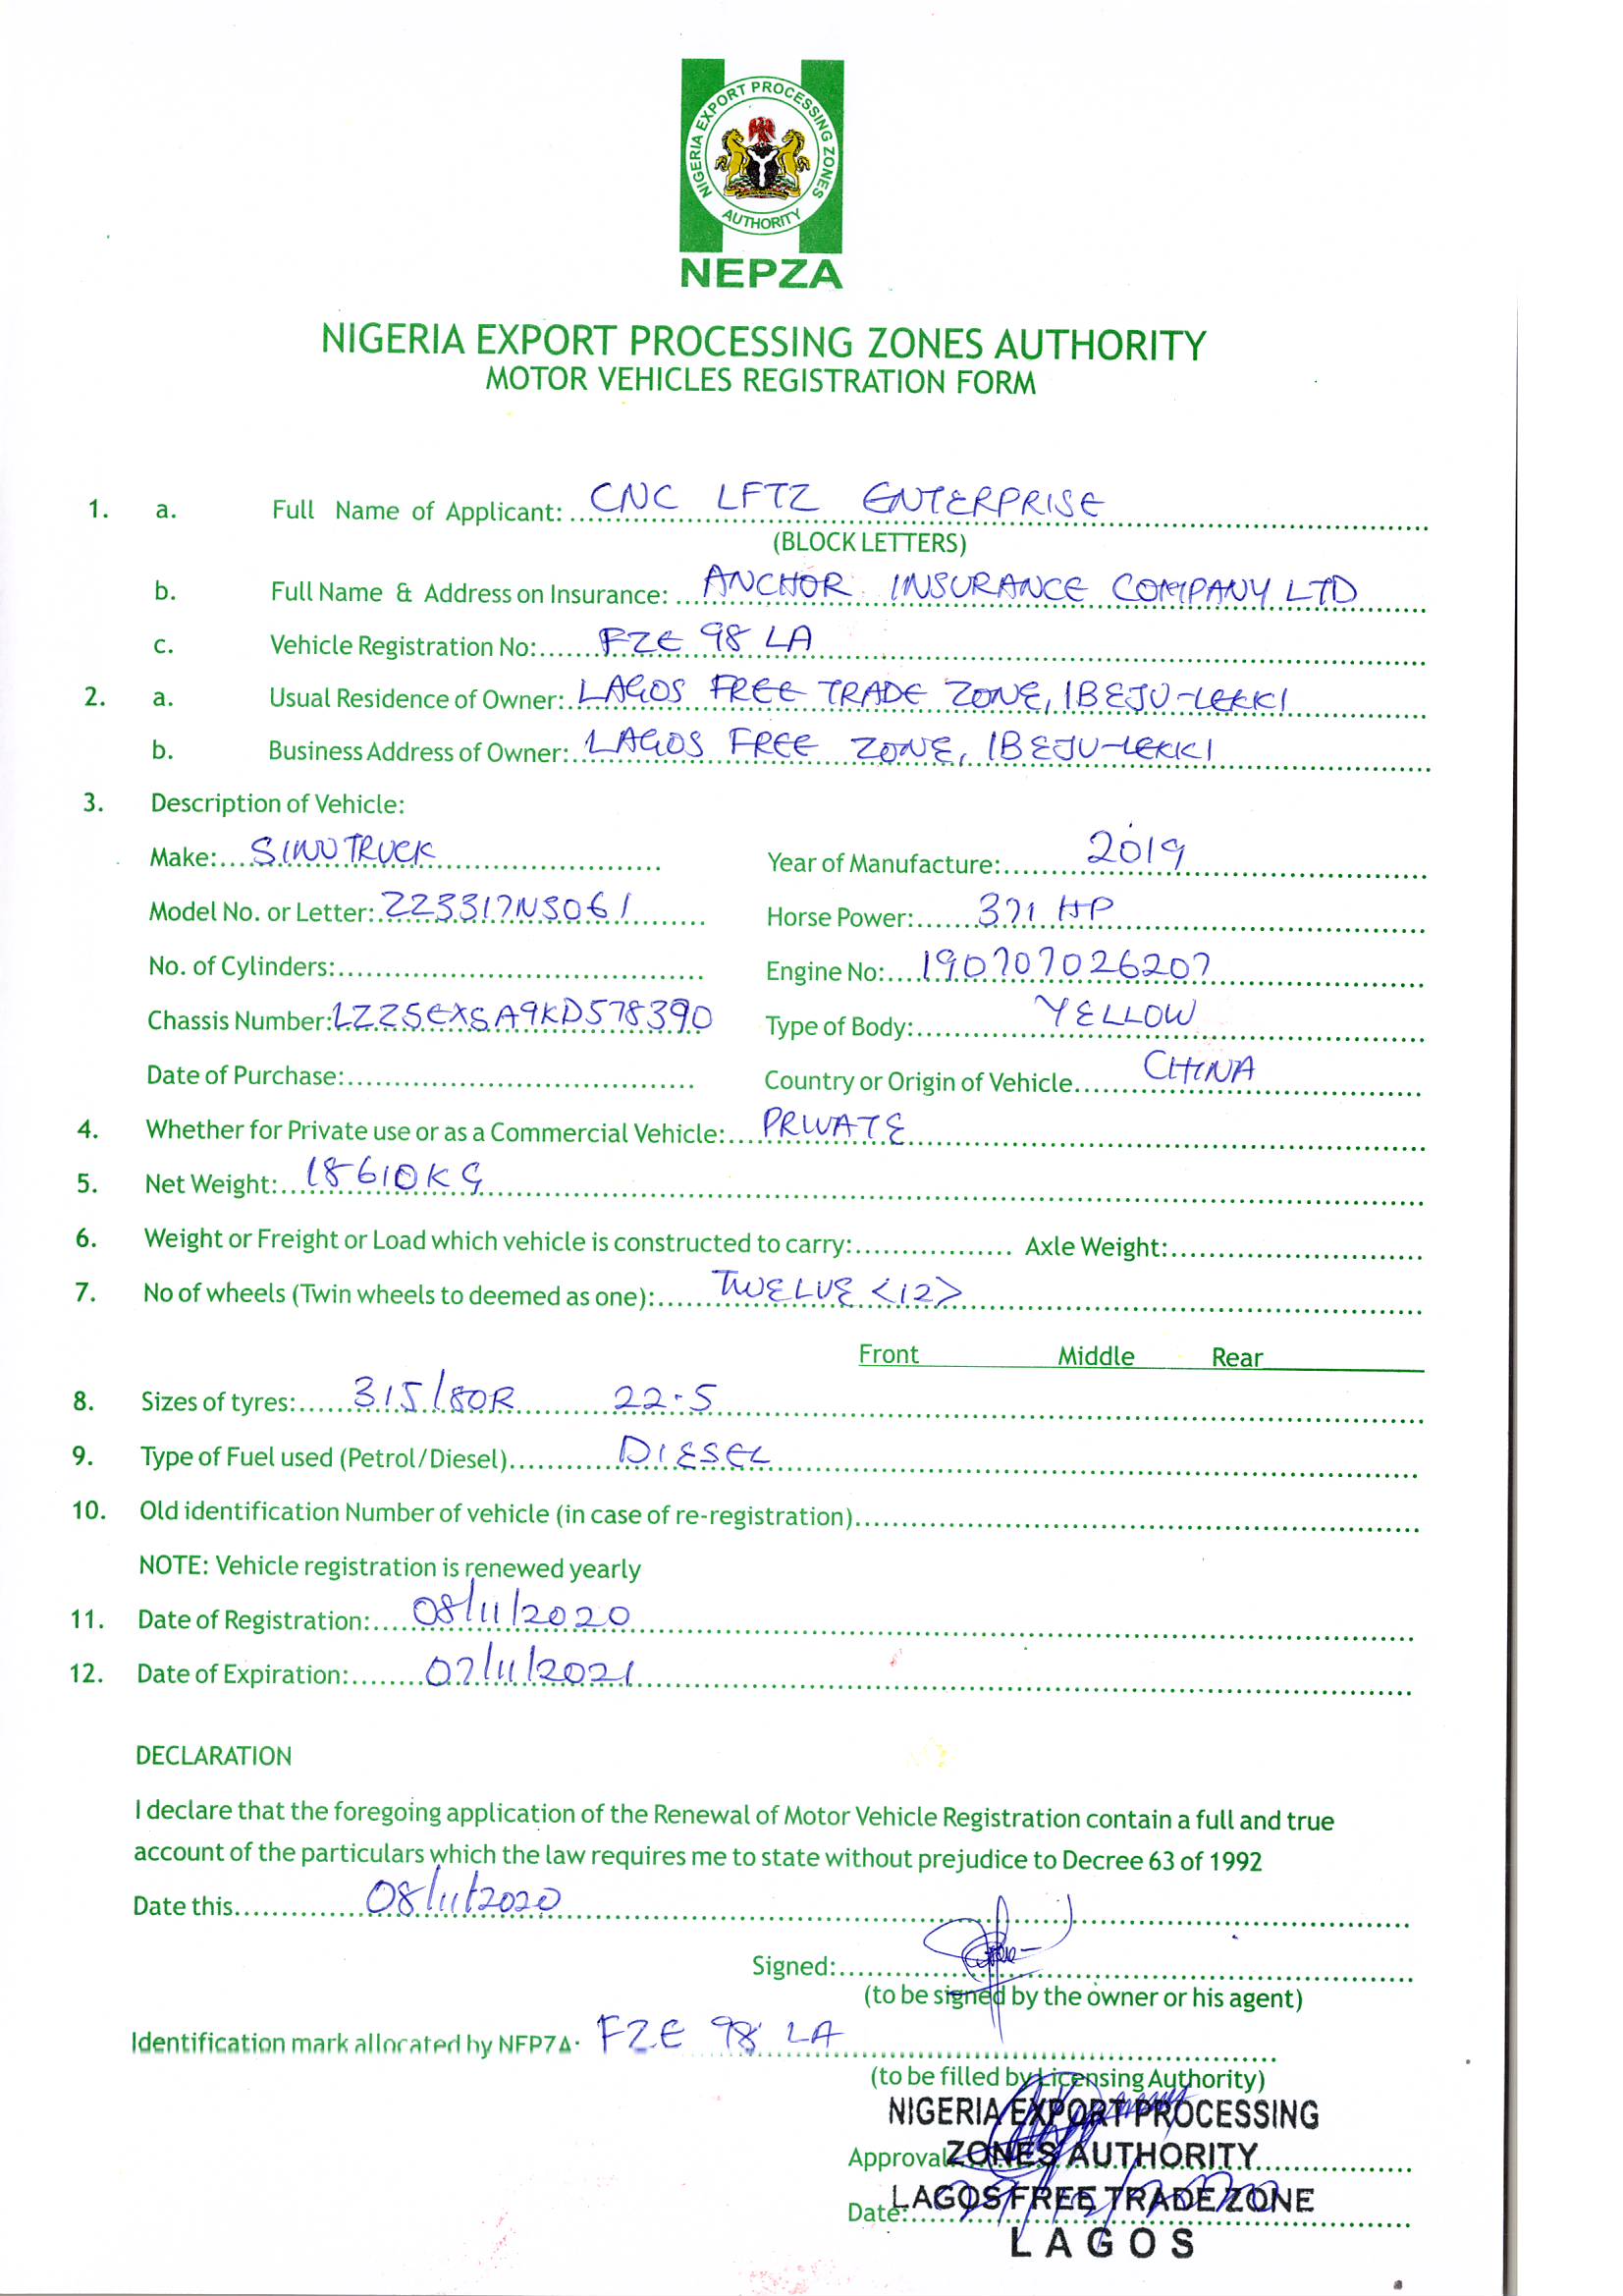 NIGERIA EXPORT PROCESSING ZONES
AUTHORITY
NEPZA
NIGERIA EXPORT PROCESSING ZONES AUTHORITY
MOTOR VEHICLES REGISTRATION FORM
1. a. Full Name of Applicant: CNC LFTZ ENTERPRISE
(BLOCK LETTERS)
b. Full Name & Address on Insurance: ANCHOR INSURANCE COMPANY LTD
c. Vehicle Registration No: FZE 98 LA
2. a. Usual Residence of Owner: LAGOS FREE TRADE ZONE, IBEJU-LEKKI
b. Business Address of Owner: LAGOS FREE ZONE, IBEJU-LEKKI
3. Description of Vehicle:
Make: SINOTRUCK Year of Manufacture: 2019
Model No. or Letter: ZZ3317N3061 Horse Power: 371 HP
No. of Cylinders: Engine No: 190707026207
Chassis Number: LZZ5EXSA9KD578390 Type of Body: YELLOW
Date of Purchase: Country or Origin of Vehicle CHINA
4. Whether for Private use or as a Commercial Vehicle: PRIVATE
5. Net Weight: 18610KG
6. Weight or Freight or Load which vehicle is constructed to carry: Axle Weight:
7. No of wheels (Twin wheels to deemed as one): TWELVE <12>
Front Middle Rear
8. Sizes of tyres: 315/80R 22.5
9. Type of Fuel used (Petrol/Diesel) DIESEL
10. Old identification Number of vehicle (in case of re-registration)
NOTE: Vehicle registration is renewed yearly
11. Date of Registration: 08/11/2020
12. Date of Expiration: 07/11/2021
DECLARATION
I declare that the foregoing application of the Renewal of Motor Vehicle Registration contain a full and true
account of the particulars which the law requires me to state without prejudice to Decree 63 of 1992
Date this 08/11/2020
Signed:
(to be signed by the owner or his agent)
Identification mark allocated by NEPZA: FZE 98 LA
(to be filled by Licensing Authority)
NIGERIA EXPORT PROCESSING
Approval ZONES AUTHORITY
Date: LAGOS FREE TRADE ZONE
LAGOS